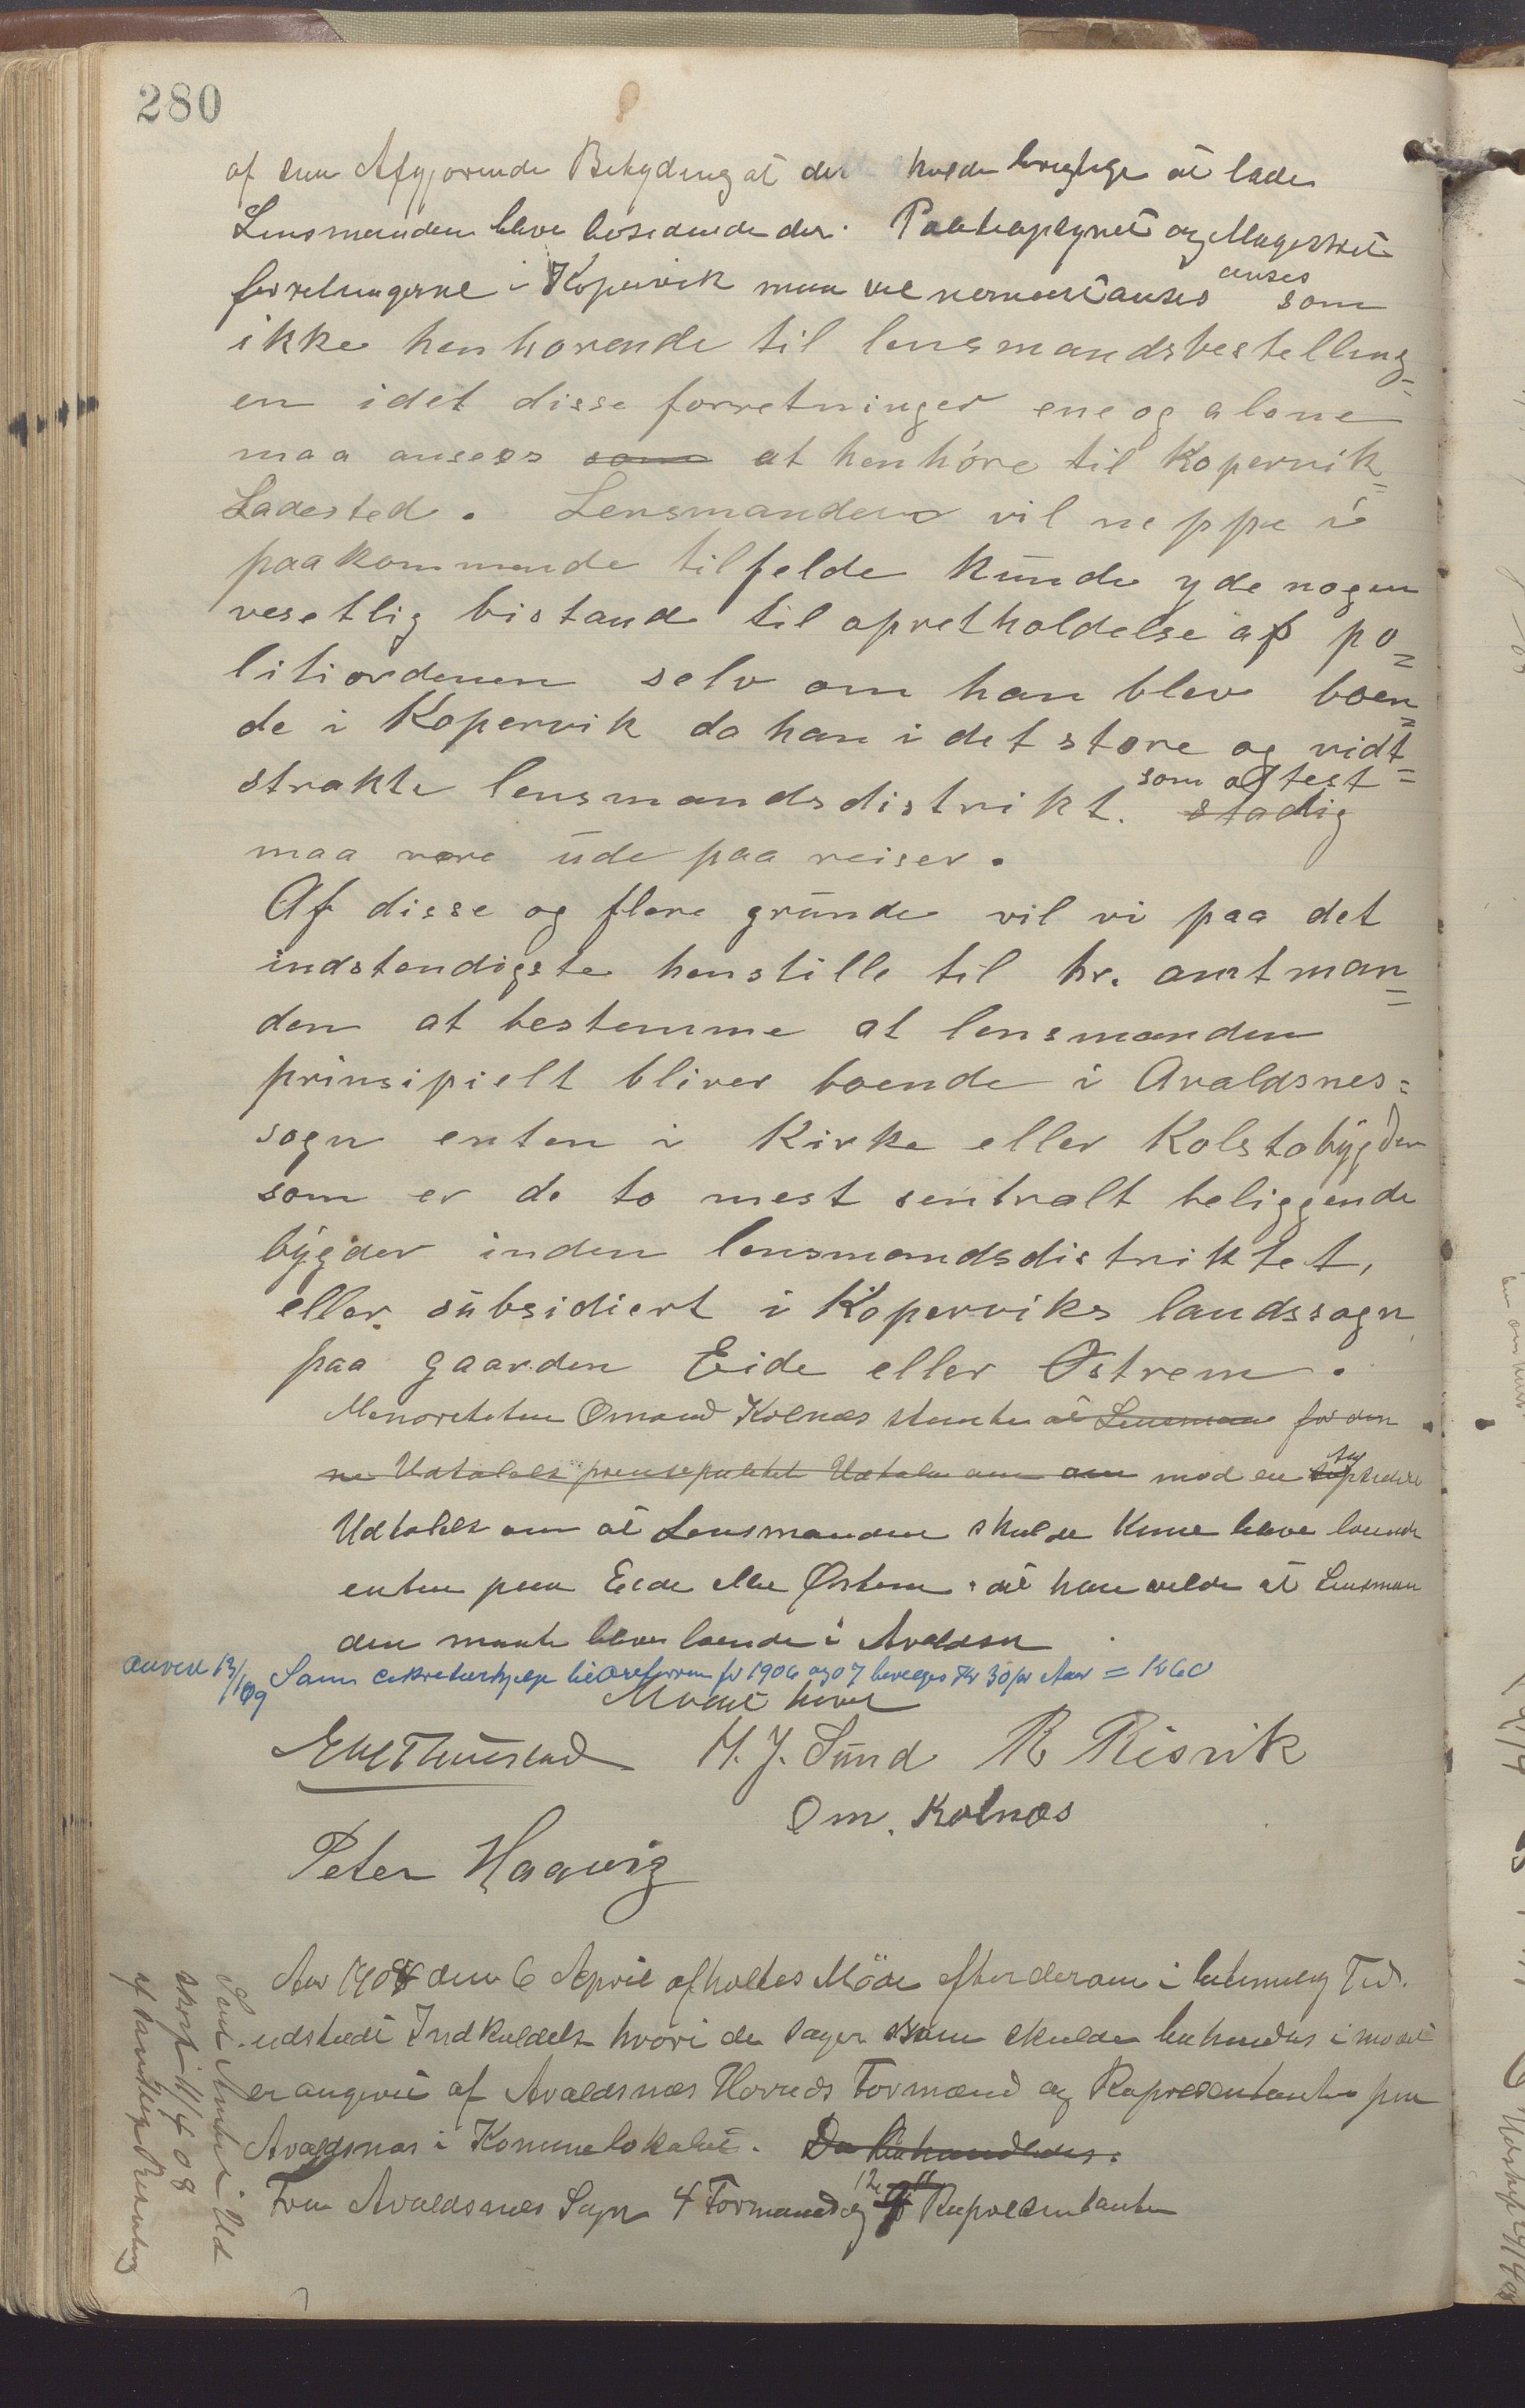 280
af den Afgjørende Betydning at det skulde bevæge at lade
Lensmanden blive boende der. Paatalesynet og Magistrat
forretningerne i Kopervik maa vel nærmest anses anses som
ikke henhørende til lensmandsbestilling-
en idet disse forretninger ene og alene
maa ansees som at henhøre til Kopervik=
Ladested. Lensmanden vil neppe i
paakommende tilfelde kunde yde nogen
vesetlig bistand til opretholdelse af po=
litiordenen selv om han blev boen=
de i Kopervik da han i det store og vidt=
strakte lensmandsdistrikt. stadig som oftest
maa være ude paa reiser.
Af disse og flere grunde vil vi paa det
indstendigste henstille til hr. amtman=
den at bestemme at lensmanden
prinsipielt bliver boende i Avaldsnes=
sogn enten i Kirke eller Kolstøbygden
som er de to mest sentralt beliggende
bygder inden lensmandsdistriktet,
eller subsidiert i Koperviks landssogn
paa gaarden Eide eller Østrem.
Menoreteten Omand Kolnæs stemte at Lensman for den
ne Udtalelse Udtalelse om om mod en
Udtalelse om at Lensmanden skulde kune blive boende
enten paa Eide eller Østrem. at han vilde at Lensman
den maate blive boende i Avaldsn
anvist 13/1 09 Som til for 1906 og 07 beviges Kr 30 pr Aar = Kr 60
Mødet hevet
H. J. Sund R Risvik
Om. Kolnæs
Peter Haavig
Aar 1908 den 6 April afholtes Møde efter derom i betimelig Tid
udstædt Indkaldelse hvori de sager som skulde behandles i mødet
er angivet af Avaldsnæs Herreds Formænd og Repræsentanter paa
Avaldsnæs i Komunelokalet. Da behandledes:
Fra Avaldsnæs Sogn 4 Formænd og 12 Repræsentanter
Sent Amtet Ud
skrift 11/4 08
af samtlige